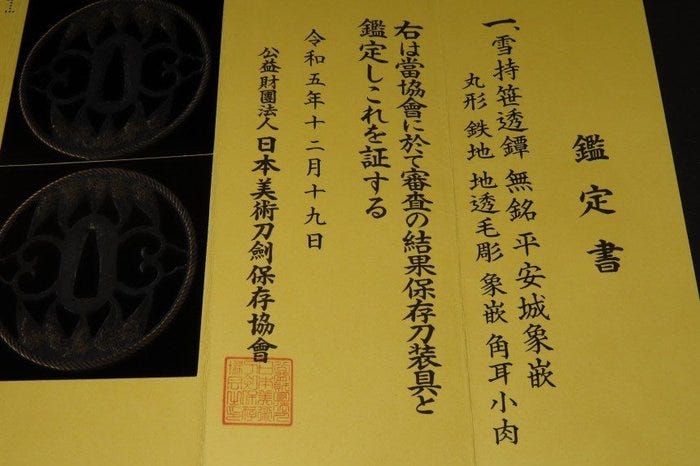 鑑定書
一、雪持笹透鐔 無銘 平安城象嵌
丸形 鉄地 地透毛彫 象嵌 角耳小肉
右は當協會に於て審査の結果保存刀装具と
鑑定しこれを証する
令和五年十二月十九日
公益財團法人 日本美術刀劍保存協會